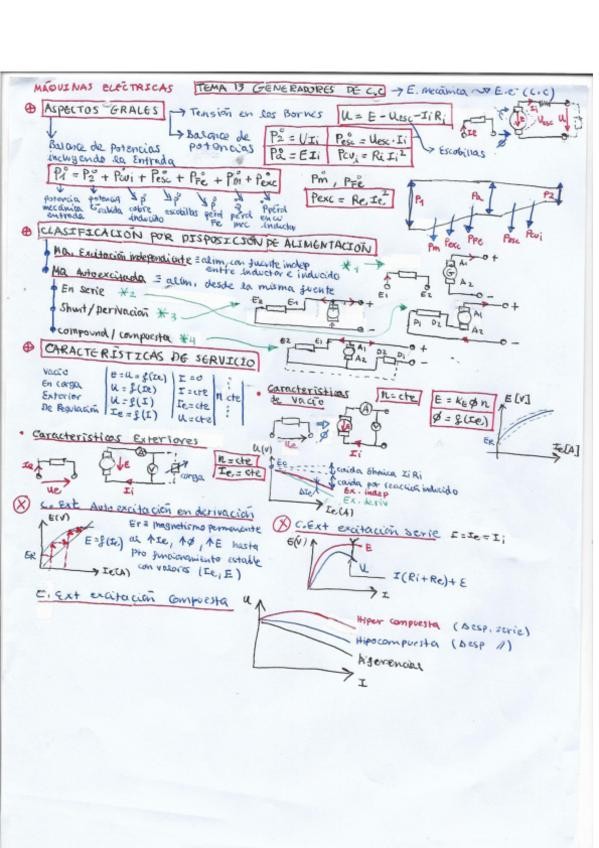 MÁQUINAS ELÉCTRICAS TEMA 19 GENERADORES DE C.C → E. mecánica ⤳ E.e (C.C)
⊕ ASPECTOS GRALES → Tensión en los Bornes U = E - Uesc - IiRi
→ Balance de potencias P2 = UIi Pesc = Uesc·Ii
Pa = EIi Pcui = RiIi² Escobillas
Balance de Potencias incluyendo la Entrada
P1 = P2 + Pcui + Pesc + PFe + Pm + Pexc Pm, PFe
Pexc = ReIe²
potencia mecánica entrada
potencia salida
P cobre inducido
P escobillas
P pérd Fe
P pérd mec
P pérd en cu inductor
P1 Pa P2
Pm Pexc PFe Pesc Pcui
⊕ CLASIFICACIÓN POR DISPOSICIÓN DE ALIMENTACIÓN
Mq. Excitación independiente = alim. con fuente indep entre inductor e inducido *1
Mq Autoexcitada = alim. desde la misma fuente
En serie *2
Shunt/derivación *3
compound/compuesta *4
E1 E2 A1 G A2 + -
E2 E1 + -
D1 D2 A1 A2 + -
E2 E1 A1 A2 D2 D1 + -
⊕ CARACTERÍSTICAS DE SERVICIO
Vacío E=U=f(Ie) I=0
En carga U=f(Ie) I=cte
Exterior U=f(I) Ie=cte
De Regulación Ie=f(I) U=cte
n cte
• Características de vacío n=cte
Ue Ø E Ii A V
E = kE Ø n
Ø = f(Ie)
E[V] ER Ie[A]
• Características Exteriores
Ie Ue E Ii A V carga
n=cte
Ie=cte
U(V) Eo
caída óhmica IiRi
caída por reacción inducido
ΔIe
Ex. indep
Ex. deriv
Ie(A)
Ⓧ C. Ext Auto excitación en derivación
E(V) ER E=f(Ie) Ie(A)
ER = magnetismo permanente
al ↑Ie, ↑Ø, ↑E hasta
pto funcionamiento estable
con valores (Ie, E)
Ⓧ C. Ext excitación serie I = Ie = Ii
E(V) E U I(Ri+Re)+E I
C. Ext excitación compuesta
U
Hiper compuesta (Desp. serie)
Hipocompuesta (Desp //)
Diferencial
I